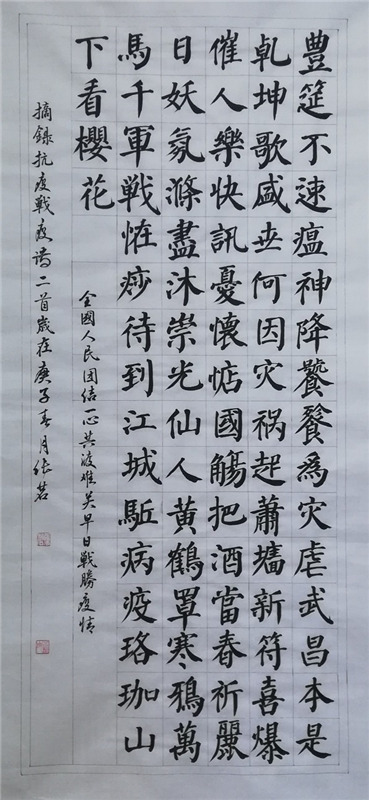 豊筵不速瘟神降饕餮為灾虐武昌本是
乹坤歌盛世何因灾祸起蕭墻新符喜爆
催人樂快訊憂懷惦國觴把酒當春祈麗
日妖氛滌盡沐崇光仙人黄鶴罩寒鴉萬
馬千軍戦恠痧待到江城駈病疫珞珈山
下看櫻花
全國人民团结一心共渡难关早日戰勝疫情
摘録抗疫戰疫詩二首歲在庚子春月张茗